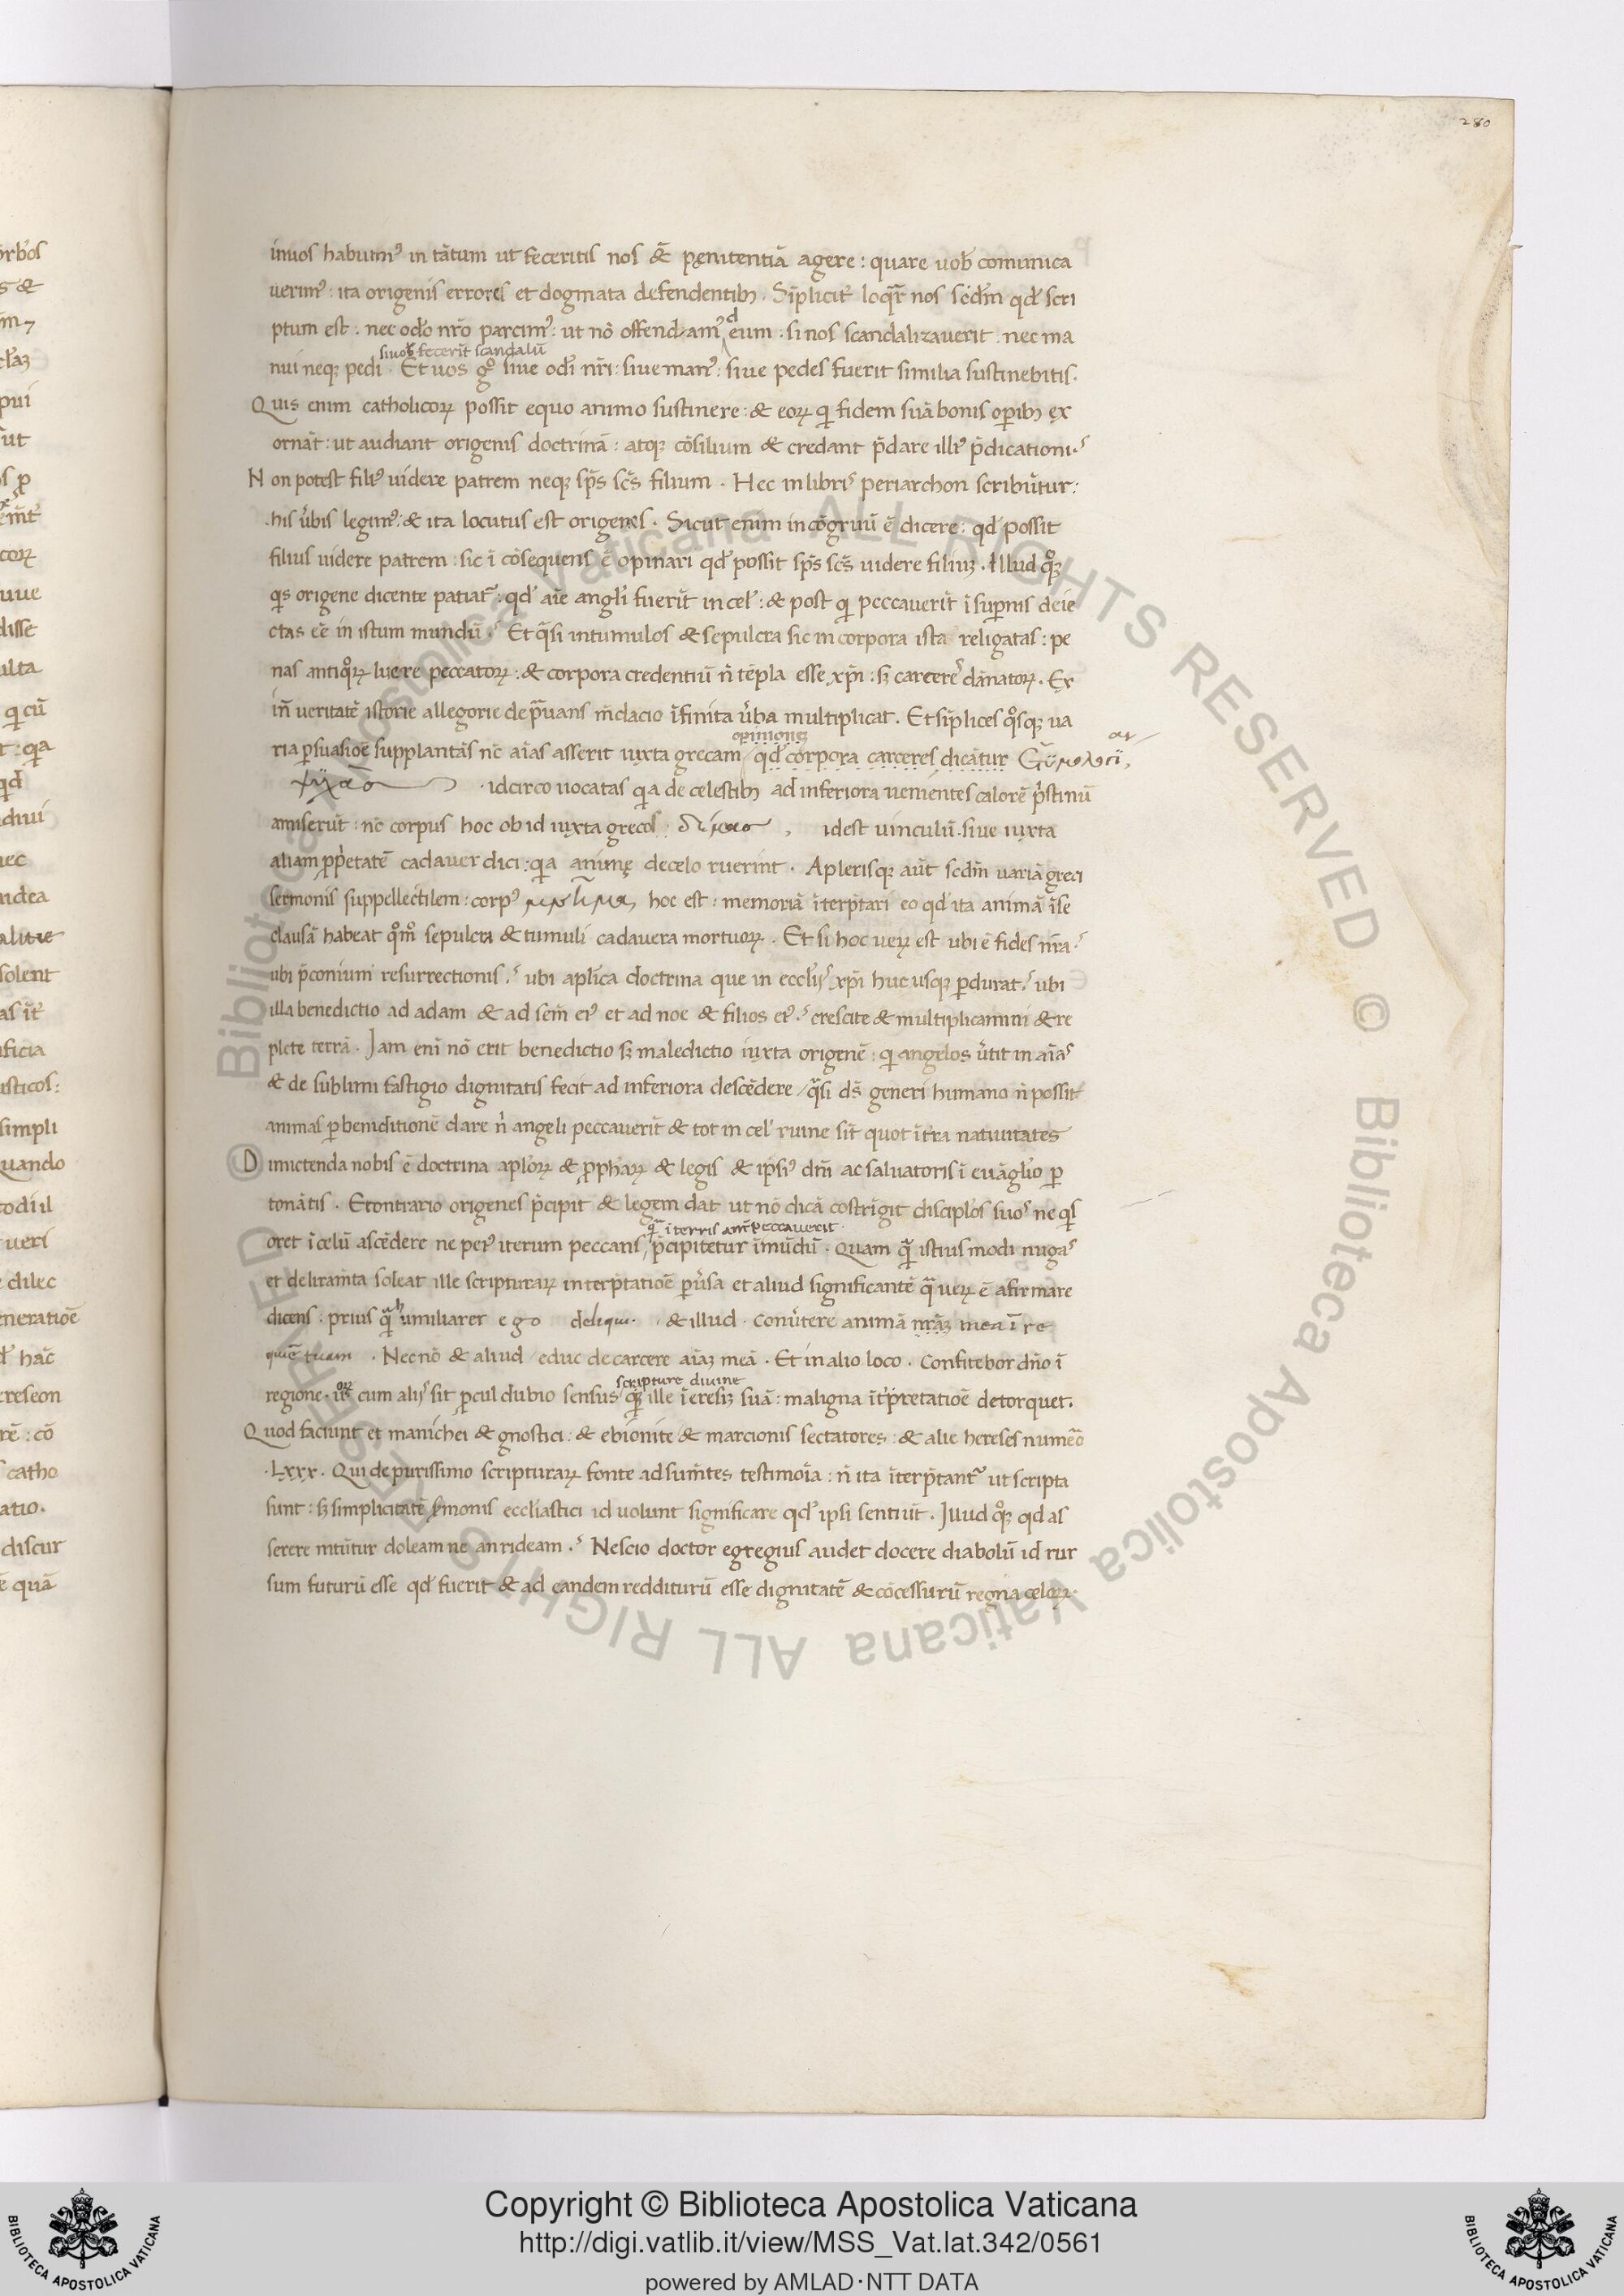 280
inuos habuim᾽ in tātum ut feceritis nos & pęnitentiā agere : quare uob̄ comunica
uerim᾽ : ita origenis errores et dogmata defendentib; . Sīpliciť loq̄r nos scđm qđ scri
ptum est . nec oclo nr̄o parcim᾽ : ut nō offendam᾽ deum . si nos scandalizauerit . nec ma
siuob̄ fecerīt scandalū
nui neq; pedi . Et uos gº siue ocli nr̄i : siue man᾽ : siue pedes fuerit similia sustinebitis .
Quis enim catholicoꝝ possit equo animo sustinere : & eoꝝ qi fidem suā bonis opib; ęx
ornāt : ut audiant origenis doctrinā : atq; cōsilium & credant p̄clare ill᾽ p̄dicationi .
Non potest fili᾽ uidere patrem neq; sp̄s sc̄s filium . Hec in libris periarchon scribūtur :
his ūbis legim᾽ : & ita locutus est origenes . Sicut enim incōgruū ē dicere : qđ possit
filius uidere patrem : sic ī cōsequens ē opinari qđ possit sp̄s sc̄s uidere filiuȝ . Illud qºȝ
qis origene dicente patiať : qđ aīe angli fuerīt in cel᾽ : & post qi peccauerīt ī supnis deie
ctas eē in istum mundū . Et qᵃsi intumulos & sepulcra sic in corpora ista religatas : pe
nas antiqºꝝ luere peccatoꝝ : & corpora credentiū ñ tēpla esse xp̄i : sȝ carcere᾽ dānatoꝝ . Ex
iñ ueritatē istorie allegorie deprᵃuans m̄dacio īfinita ūba multiplicat . Et sīplices qºsq; ua
opinioneȝ
ria psuasiōe supplantās nc̄ aīas asserit iuxta grecam qđ corpora carceres dicātur
idcirco uocatas qia de celestib; ad inferiora uenientes calorē p̄stinū
amiserūt : nc̄ corpus hoc ob id iuxta grecos idest uinculū . siue iuxta
aliam ppetatē cadauer dici : qia animę de celo ruerint . Aplerisq; aūt scđm uariā greci
sermonis suppellectilem : corp᾽ hoc est : memoriā īterp̄tari eo qđ ita animā īse
clausā habeat qºmº sepulcra & tumuli cadauera mortuoꝝ . Et si hoc ueꝝ est ubi ē fides nr̄a .
ubi p̄conium resurrectionis . ubi aplica doctrina que in eccliȷ᾽ xp̄i huc usq; pdurat . ubi
illa benedictio ad adam & ad sem̄ ei᾽ et ad noe & filios ei᾽ . crescite & multiplicamini & re
plete terrā . Jam enī nō erit benedictio sȝ maledictio iuxta origenē : qi angelos ūtit in aīas
& de sublimi fastigio dignitatis fecit ad inferiora descēdere / qᵃsi ds̄ generi humano ñ possit
animas p beniditionē dare ñ angeli peccauerīt & tot in cel᾽ ruine sīt quot ītra natiuitates
Dimictenda nobis ē doctrina aploꝝ & pphaꝝ & legis & ipsi᾽ dñi ac saluatoris ī euāglio p
tonātis . Econtrario origenes p̄cipit & legem dat ut nō dicā costrīgit disciplos suos ne qis
qᵃ ī terris am̄ peccauerit .
oret ī celū ascēdere ne pei᾽ iterum peccans p̄cipitetur īmūdū . Quam qᵃ istius modi nugas
et deliram̄ta soleat ille scripturaꝝ interp̄tatiōe pūsa et aliud significantē qᵃ ueꝝ ē afirmare
dicens : prius qᵃ humiliarer ego deliqui . & illud . conūtere animā mea ī re
quiē tuam . Nec nō & aliud educ de carcere aīaȝ meā . Et in alio loco . confitebor dño ī
scripture diuine
regione . cum aliȷ᾽ sit pcul dubio sensus qºȝ ille ī eresiȝ suā : maligna īt̄p̄retatiōe detorquet .
Quod faciunt et manichei & gnostici : & ebionite & marcionis sectatores : & alie hereses numeᵃo
. Lxxx . Qui de purissimo scripturaꝝ fonte adsum̄tes testimoīa : ñ ita īterp̄tant᾽ ut scripta
sunt : sȝ simplicitatē s̄monis eccliastici id uolunt significare qđ ipsi sentiūt . Illud qºȝ qd as
serere nitūtur doleam ne an rideam . Nescio doctor egregius audet docere diabolū id rur
sum futurū esse qđ fuerit & ad eandem redditurū esse dignitatē & cōcessurū regna celoꝝ
Copyright © Biblioteca Apostolica Vaticana
http://digi.vatlib.it/view/MSS_Vat.lat.342/0561
powered by AMLAD·NTT DATA